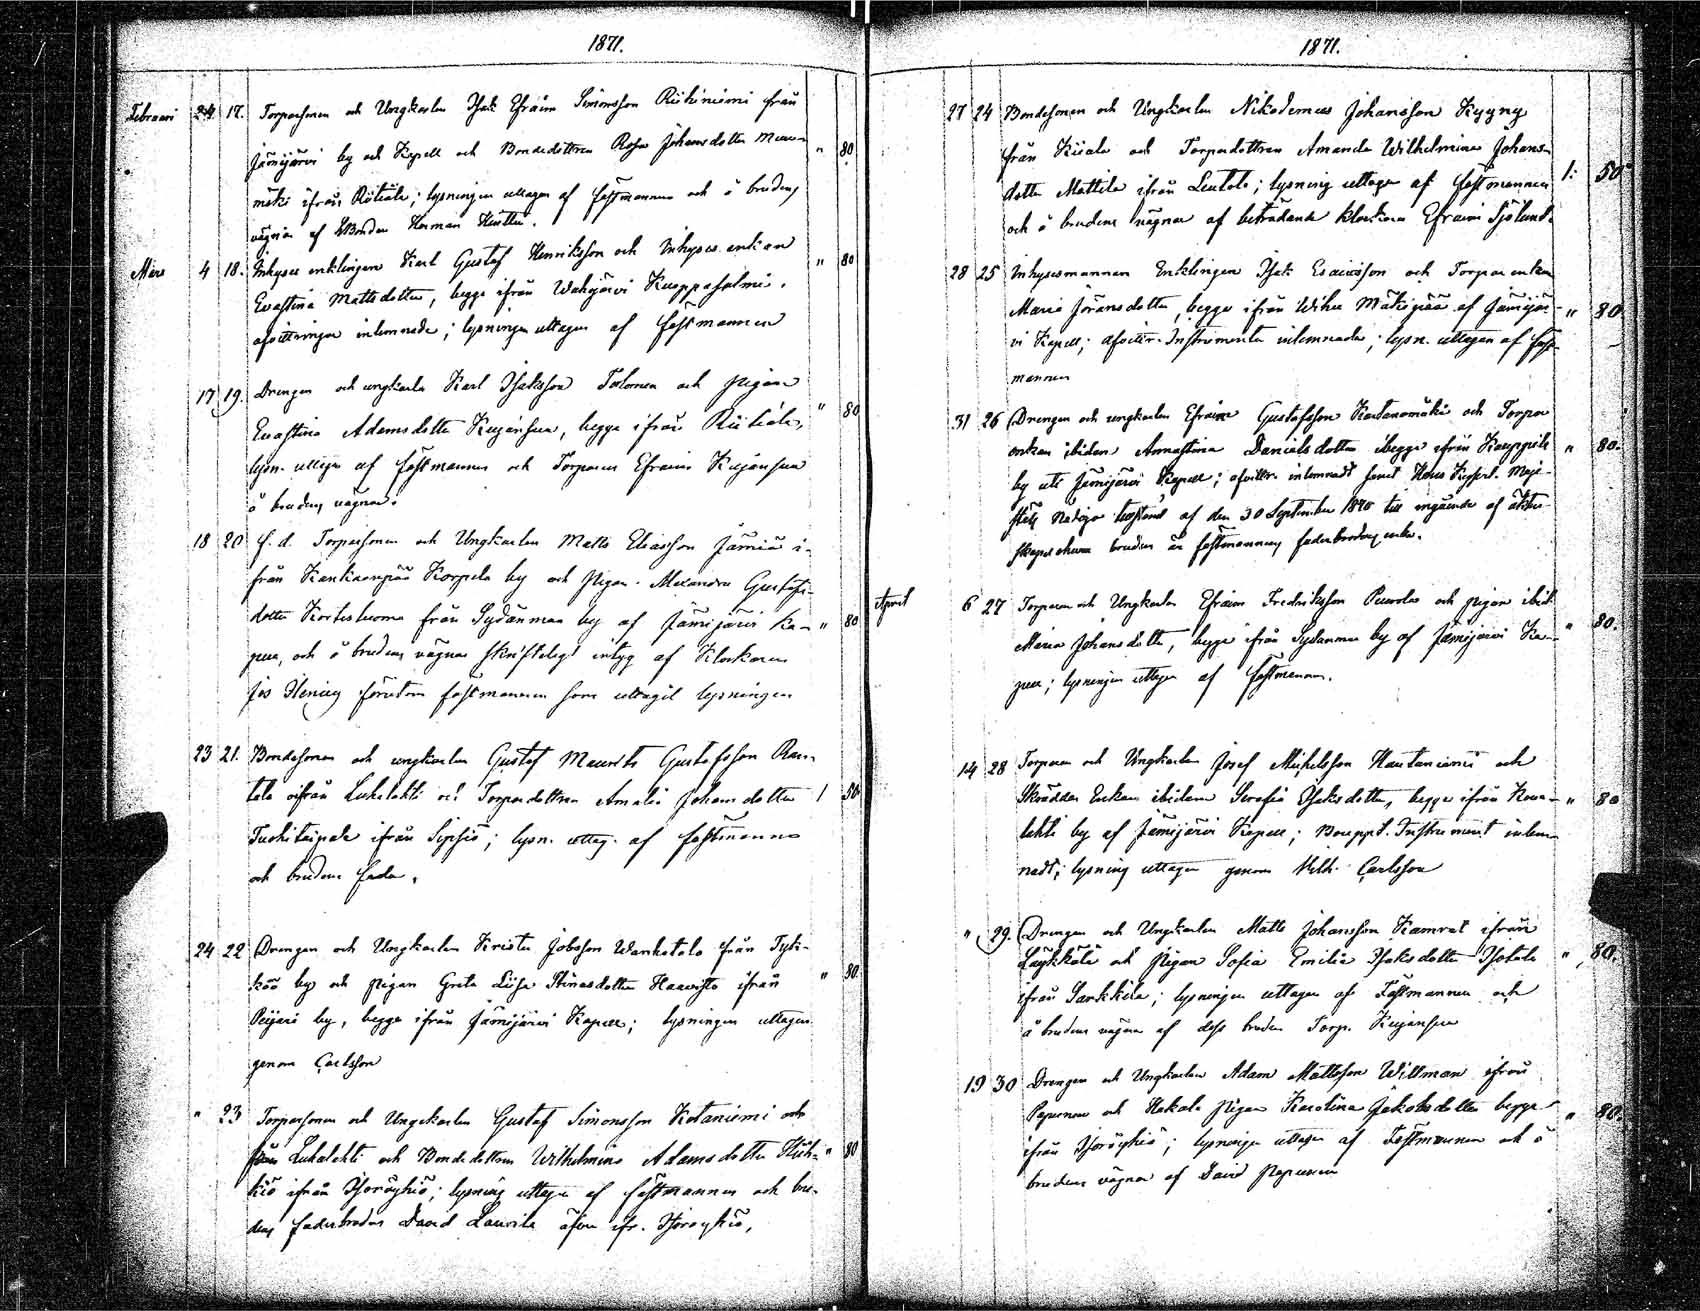 1871.
Februari 24 17. Torparsonen och Ungkarlen Isak Efraim Simonsson Riihiniemi från
Jämijärvi by och Kapell och Bondedottren Rosa Johansdotter " 80
mäki ifrån Riitiala; lysningen uttagen af fästmannen och å brudens
vägnar af Bonden Herman Heittu.
Mars 4 18. Inhyses enklingen Karl Gustaf Henriksson och Inhyses enkan " 80
Evastina Mattsdotter, begge ifrån Wahojärvi Kuoppasalmi.
afvittringar inlemnade; lysningen uttagen af fästmannen
17 19. Drengen och ungkarlen Karl Isaksson Talonen och pigan
Evastina Adamsdotter Kujansuu, begge ifrån Riitiala, " 80
lysn. uttagen af fästmannen och Torparen Efraim Kujansuu
å brudens vägnar.
18 20 f. d. Torparsonen och Ungkarlen Matts Eliasson Jämiä i-
från Kankaanpää Korpela by och pigan Alexandra Gustafs-
dotter Kortesluoma från Sydänmaa by af Jämijärvi Ka- " 80
pell, och å brudens vägnar skrifteligt intyg af Klockaren
Jos Heniey förutom fästmannen som uttagit lysningen
23 21. Bondesonen och ungkarlen Gustaf Maurits Gustafsson Ran-
tala ifrån Luhalahti och Torpardottren Amalia Johansdotter 1 50
Tuohiteipale ifrån Sipsiö; lysn. uttag. af fästmannen
och brudens fader.
24 22 Drengen och Ungkarlen Krister Jobsson Wanhatalo från Tyk-
köö by och pigan Greta Lisa Stinasdotter Haavisto ifrån " 80
Peijari by, begge ifrån Jämijärvi Kapell; lysningen uttagen
genom Carlsson
" 23 Torparsonen och Ungkarlen Gustaf Simonsson Kotaniemi och
från Luhalahti och Bondedottren Wilhelmina Adamsdotter Huh- " 80
kiö ifrån Isoröyhiö; lysning uttagen af fästmannen och bru-
dens faderbroder David Laurila äfven ifr. Isoröyhiö.
1871.
27 24 Bondesonen och Ungkarlen Nikodemus Johansson Kyyny
från Kiiala och Torpardottren Amanda Wilhelmina Johans-
dotter Mattila ifrån Leutola; lysning uttagen af fästmannen 1: 50
och å brudens vägnar af biträdande klockaren Efraim Sjölund.
28 25 Inhysesmannen Enklingen Isak Esaiasson och Torpar enkan
Maria Jöransdotter, begge ifrån Wihu Mäkipää af Jämijär- " 80
vi Kapell; afvittr. Instrumenter inlemnade; lysn. uttagen af fäst-
mannen
31 26 Drengen och ungkarlen Efraim Gustafsson Kautanomäki och Torpar
enkan ibidem Annastina Danielsdotter begge ifrån Kauppila " 80.
by uti Jämijärvi Kapell; afvittr. inlemnadt samt Hans Kejserl. Maje-
stäts Nådiga af den 30 September 1870 till ingående af äkten-
skapet churu bruden är fästmannens faderbroders enka.
April 6 27 Torparen och Ungkarlen Efraim Fredriksson Puurolas och pigan ibid.
Maria Johansdotter, begge ifrån Sydänmaa by af Jämijärvi Ka- " 80.
pell; lysningen uttagen af fästmannen.
14 28 Torparen och Ungkarlen Josef Michelsson Hautaniemi och
Skräddar Enkan ibidem Serafia Isaksdotter, begge ifrån Kova- " 80
lahti by af Jämijärvi Kapell; Bouppt. Instrument inlem-
nadt; lysning uttagen genom Carlsson
" 29. Drengen och Ungkarlen Matts Johansson Kamrat ifrån
Läykkälä och pigan Sofia Emilia Isaksdotter Isotalo " 80.
ifrån Sarkkila; lysningen uttagen af Fästmannen och
å brudens vägnar af dess broder Torp. Kujansuu
19 30 Drengen och Ungkarlen Adam Mattsson Willman ifrån
Papunen och Hakala pigan Karolina Jakobsdotter begge " 80.
ifrån Isoröyhiö; lysningen uttagen af Fästmannen och å
brudens vägnar af David Papunen